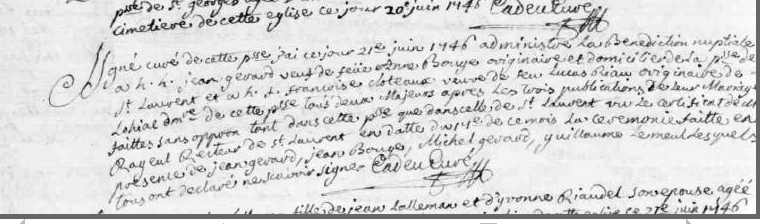 psse de St. georges
cimetiere de cette eglise ce jour 20e juin 1746 Cadeu Curé
Signé curé de cette psse j'ai ce jour 21e juin 1746 administré La Benediction nuptiale
a h. h. jean gerard veuf de feüe Anne Bouge originaire et domicilié de la psse de
St. Laurent et a h. f. francoise cloteaux veuve de feu Lucas Riau originaire de
Lohial dmre de cette psse tous deux Majeurs apres Les trois publications de Leur Mariage
faittes sans oppoon tant dans cette psse que dans celle de St. Laurent vu Le certificat de
Rayeul Recteur de St. Laurent en datte du 14e de ce mois La ceremonie faitte en
presence de jean gerard, jean Bouge, Michel gerard, guillaume Lemeul Lesquels
tous ont declaré ne scavoir signer Cadeu Curé
fille de jean Lalleman et d'yvonne Riaudel son epouse agée
21e juin 1746